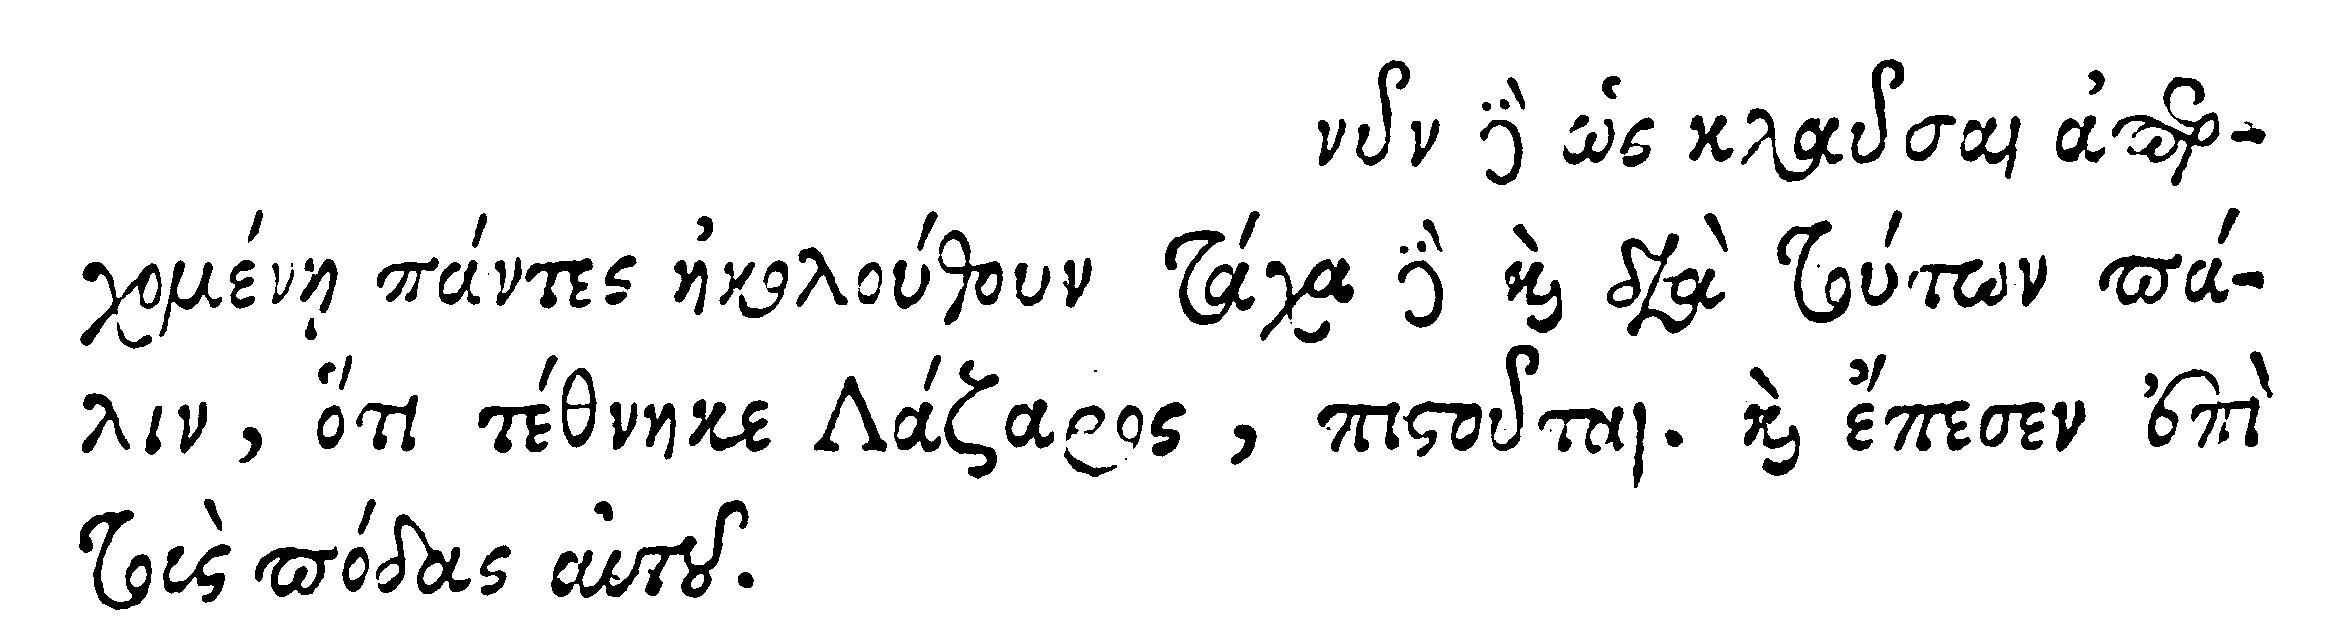 νῦν δὲ ὡς κλαῦσαι ἀπερ-
χομένῃ πάντες ἠκολούθουν τάχα δὲ καὶ διὰ τούτων πά-
λιν, ὅτι τέθνηκε Λάζαρος, πιστοῦται. καὶ ἔπεσεν ἐπὶ
τοὺς πόδας αὐτοῦ.